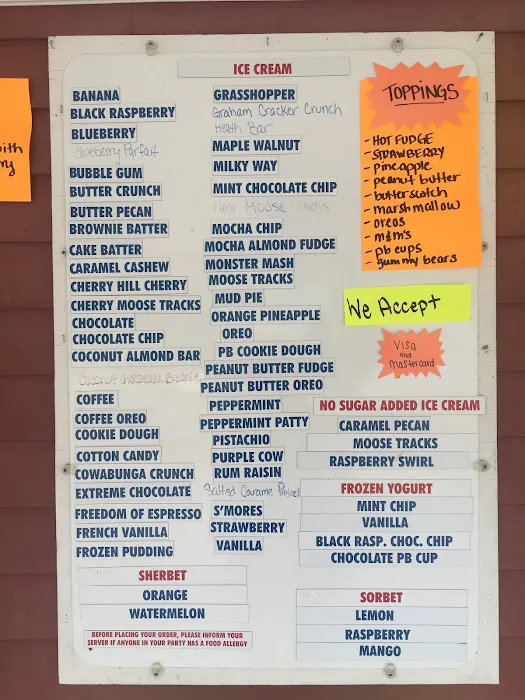 ICE CREAM
BANANA
BLACK RASPBERRY
BLUEBERRY
Blueberry Parfait
BUBBLE GUM
BUTTER CRUNCH
BUTTER PECAN
BROWNIE BATTER
CAKE BATTER
CARAMEL CASHEW
CHERRY HILL CHERRY
CHERRY MOOSE TRACKS
CHOCOLATE
CHOCOLATE CHIP
COCONUT ALMOND BAR
Coconut Chocolate Brownie
COFFEE
COFFEE OREO
COOKIE DOUGH
COTTON CANDY
COWABUNGA CRUNCH
EXTREME CHOCOLATE
FREEDOM OF ESPRESSO
FRENCH VANILLA
FROZEN PUDDING
GRASSHOPPER
Graham Cracker Crunch
Heath Bar
MAPLE WALNUT
MILKY WAY
MINT CHOCOLATE CHIP
Mint Moose Tracks
MOCHA CHIP
MOCHA ALMOND FUDGE
MONSTER MASH
MOOSE TRACKS
MUD PIE
ORANGE PINEAPPLE
OREO
PB COOKIE DOUGH
PEANUT BUTTER FUDGE
PEANUT BUTTER OREO
PEPPERMINT
PEPPERMINT PATTY
PISTACHIO
PURPLE COW
RUM RAISIN
Salted Carame Pretzel
S'MORES
STRAWBERRY
VANILLA
SHERBET
ORANGE
WATERMELON
BEFORE PLACING YOUR ORDER, PLEASE INFORM YOUR
SERVER IF ANYONE IN YOUR PARTY HAS A FOOD ALLERGY
TOPPINGS
- HOT FUDGE
- STRAWBERRY
- pineapple
- peanut butter
- butterscotch
- marshmallow
- oreos
- m&m's
- pb cups
- gummy bears
We Accept
Visa
and
Mastercard
NO SUGAR ADDED ICE CREAM
CARAMEL PECAN
MOOSE TRACKS
RASPBERRY SWIRL
FROZEN YOGURT
MINT CHIP
VANILLA
BLACK RASP. CHOC. CHIP
CHOCOLATE PB CUP
SORBET
LEMON
RASPBERRY
MANGO
with